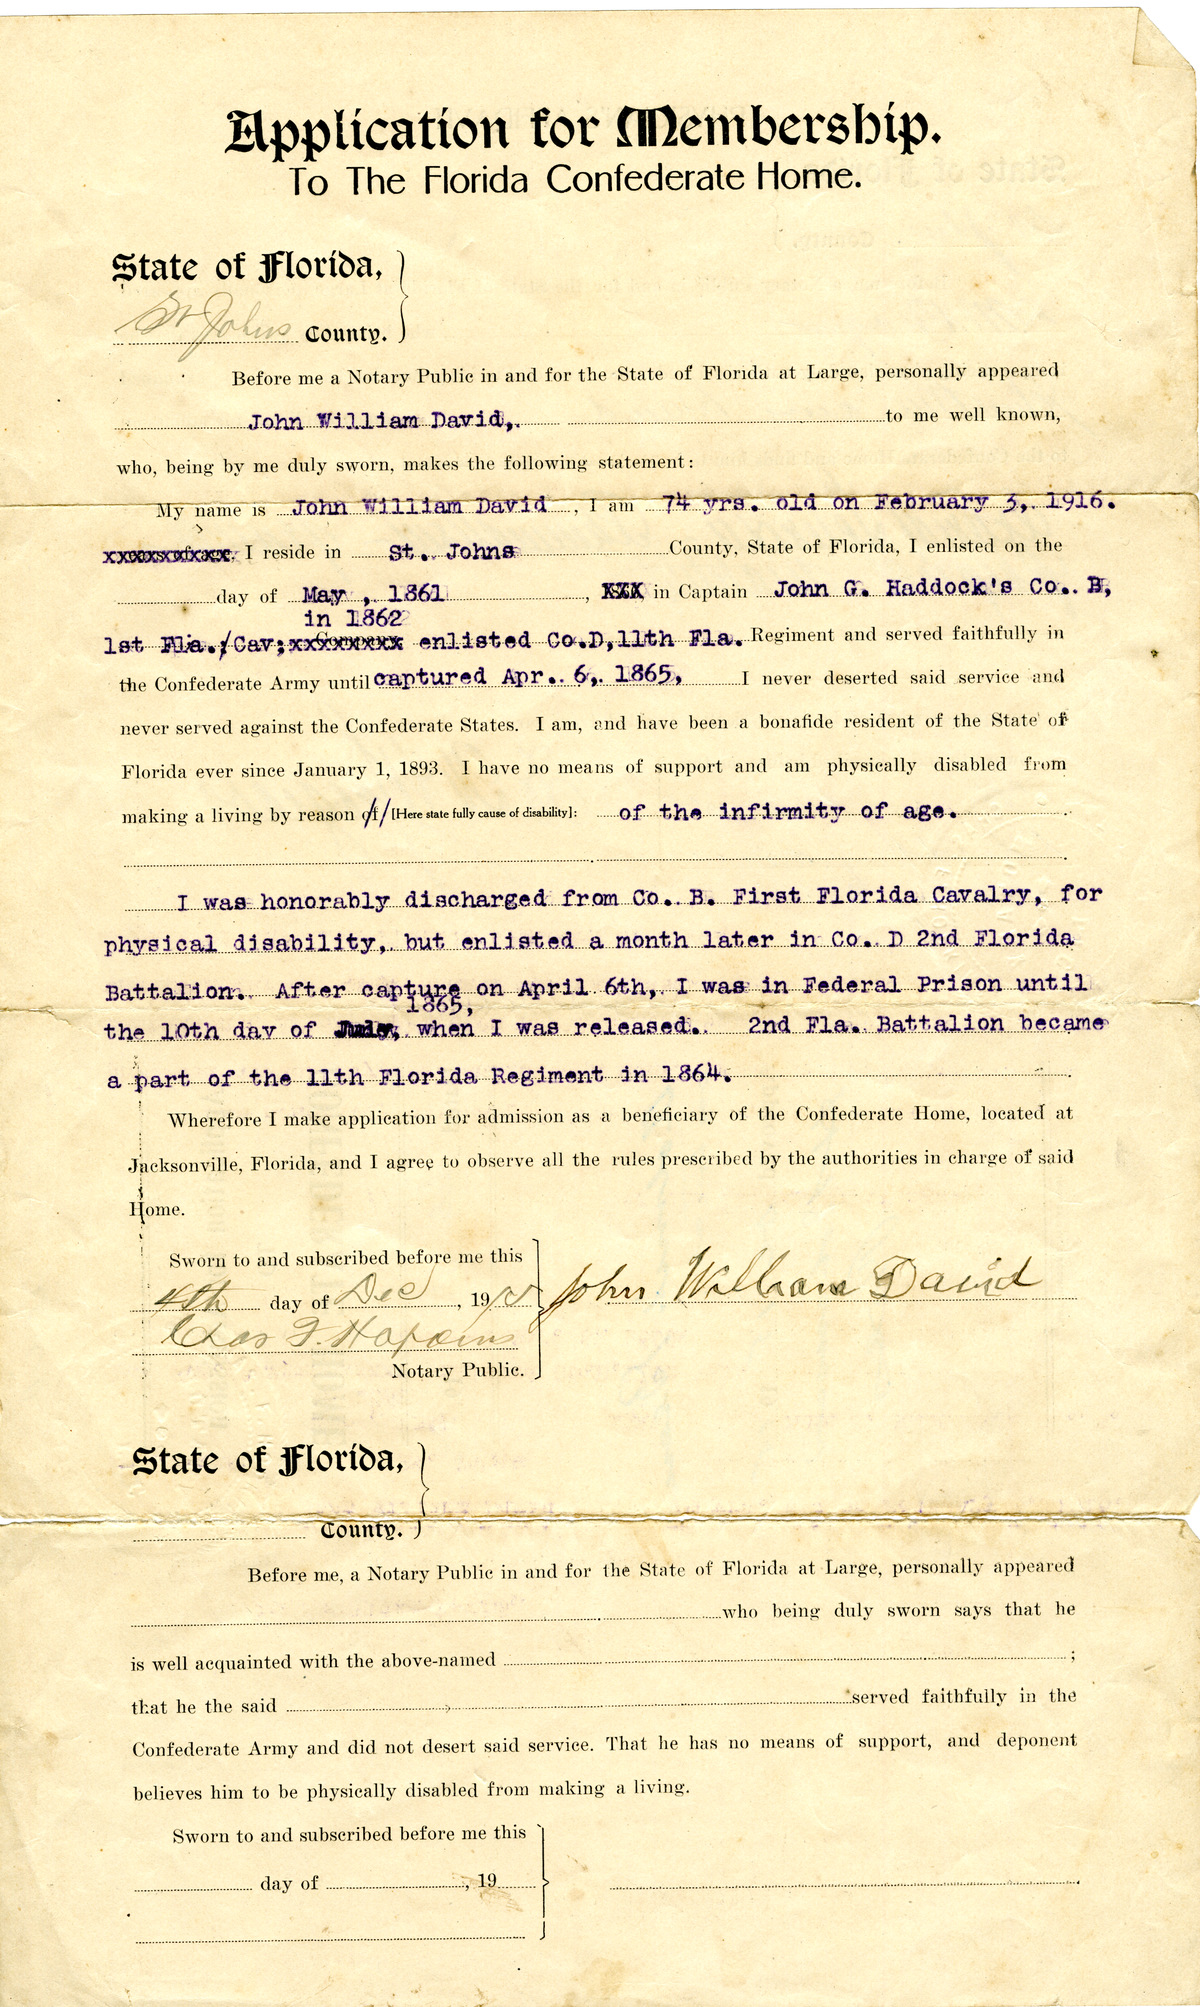 Application for Membership.
To The Florida Confederate Home.
State of Florida,
St Johns County.
Before me a Notary Public in and for the State of Florida at Large, personally appeared
John William David, to me well known,
who, being by me duly sworn, makes the following statement:
My name is John William David, I am 74 yrs. old on February 3, 1916.
I reside in St. Johns County, State of Florida, I enlisted on the
day of May, 1861, XXX in Captain John G. Haddock's Co. B,
in 1862
1st Fla./Cav; xxxxxxxx enlisted Co.D, 11th Fla. Regiment and served faithfully in
the Confederate Army until captured Apr. 6, 1865, I never deserted said service and
never served against the Confederate States. I am, and have been a bonafide resident of the State of
Florida ever since January 1, 1893. I have no means of support and am physically disabled from
making a living by reason of/ [Here state fully cause of disability]: of the infirmity of age.
I was honorably discharged from Co. B. First Florida Cavalry, for
physical disability, but enlisted a month later in Co. D 2nd Florida
Battalion. After capture on April 6th, I was in Federal Prison until
1865,
the 10th day of July, when I was released. 2nd Fla. Battalion became
a part of the 11th Florida Regiment in 1864.
Wherefore I make application for admission as a beneficiary of the Confederate Home, located at
Jacksonville, Florida, and I agree to observe all the rules prescribed by the authorities in charge of said
Home.
Sworn to and subscribed before me this
4th day of Dec, 19
John William David
Chas F. Hopkins
Notary Public.
State of Florida,
County.
Before me, a Notary Public in and for the State of Florida at Large, personally appeared
who being duly sworn says that he
is well acquainted with the above-named ;
that he the said served faithfully in the
Confederate Army and did not desert said service. That he has no means of support, and deponent
believes him to be physically disabled from making a living.
Sworn to and subscribed before me this
day of , 19